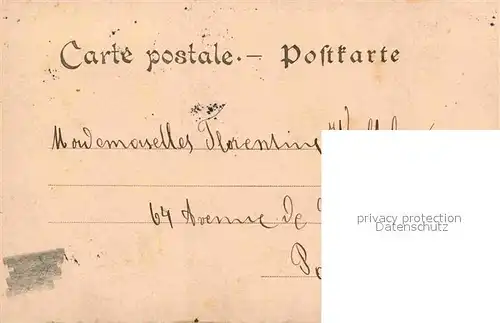 Carte postale. — Postkarte
Mademoiselles Florentine
64 Avenue de
privacy protection
Datenschutz